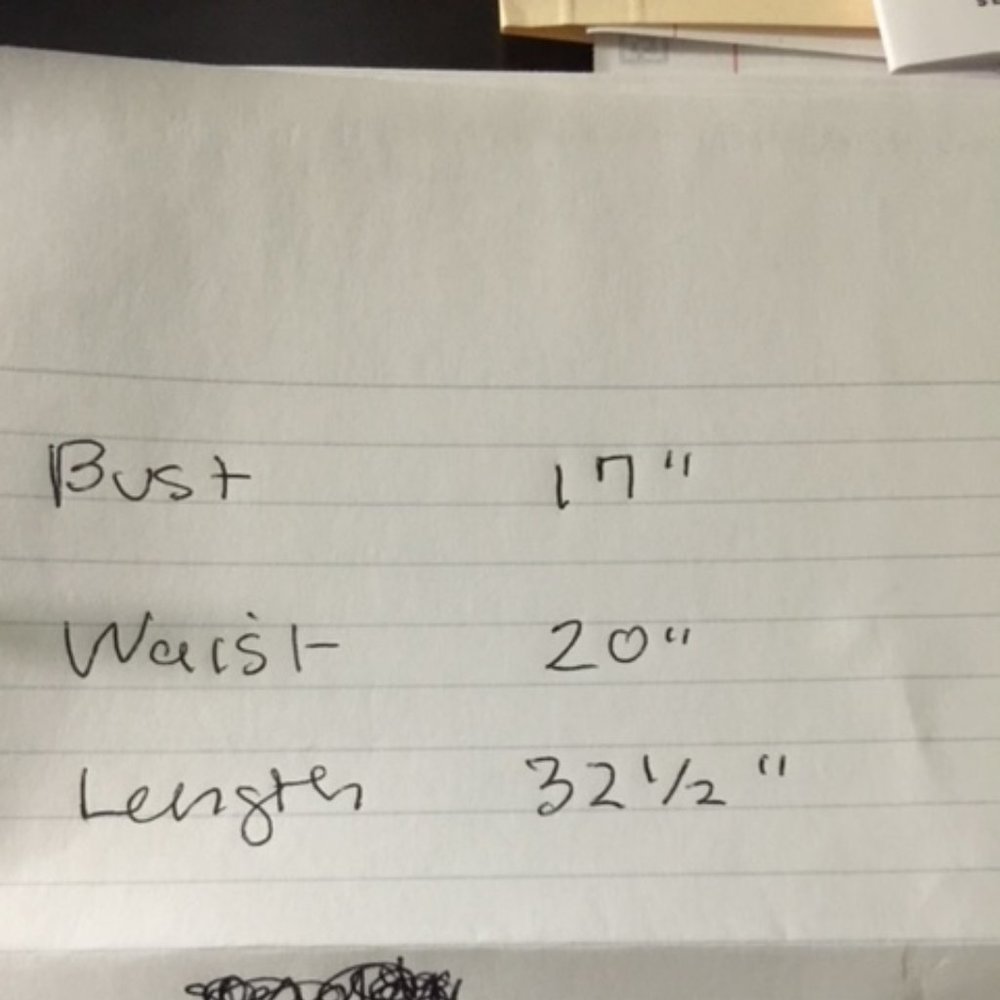 Bust 17"
Waist 20"
Length 32 1/2"